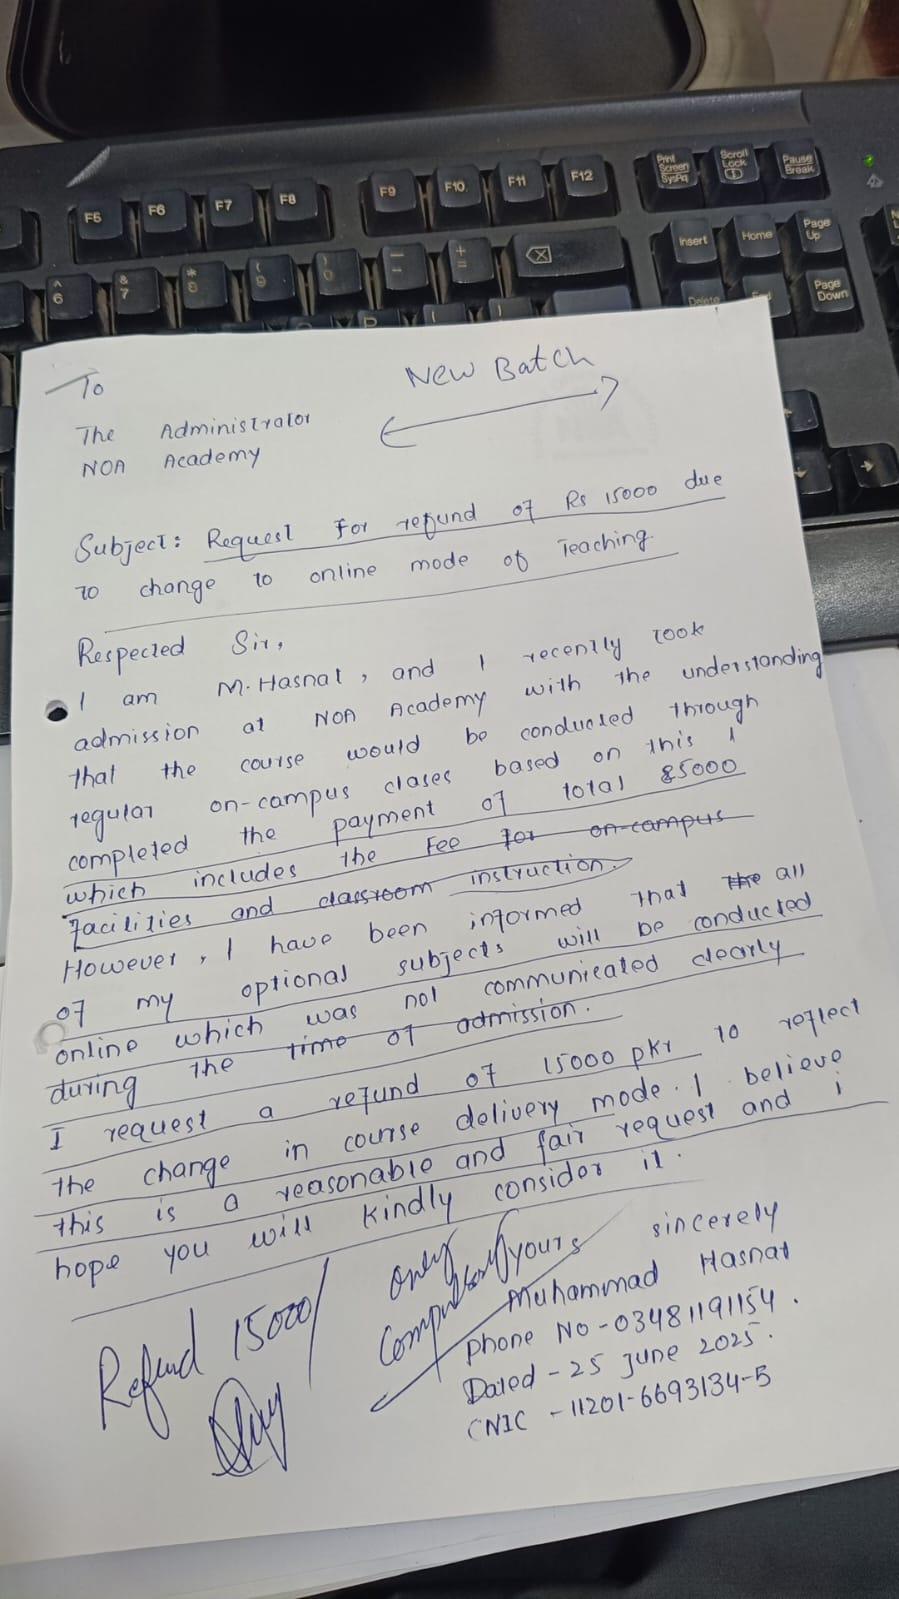 F5 F6 F7 F8 F9 F10 F11 F12 Print Screen SysRq Scroll Lock Pause Break
^ 6 & 7 * 8 ( 9 ) 0 + = Insert Home Page Up
Delete End Page Down
New Batch
To
The Administrator
NOA Academy
Subject: Request for refund of Rs 15000 due
to change to online mode of Teaching.
Respected Sir,
I am M.Hasnat, and I recently took
admission at NOA Academy with the understanding
that the course would be conducted through
regular on-campus clases based on this I
completed the payment of total 85000
which includes the Fee for on-campus
facilities and classroom instruction.
However, I have been informed that the all
of my optional subjects will be conducted
online which was not communicated clearly
during the time of admission.
I request a refund of 15000 pkr to reflect
the change in course delivery mode. I believe
this is a reasonable and fair request and i
hope you will kindly consider it.
Refund 15000/ only Compulsory
yours sincerely
Muhammad Hasnat
Phone No - 03481191154.
Dated - 25 June 2025.
CNIC - 11201-6693134-5